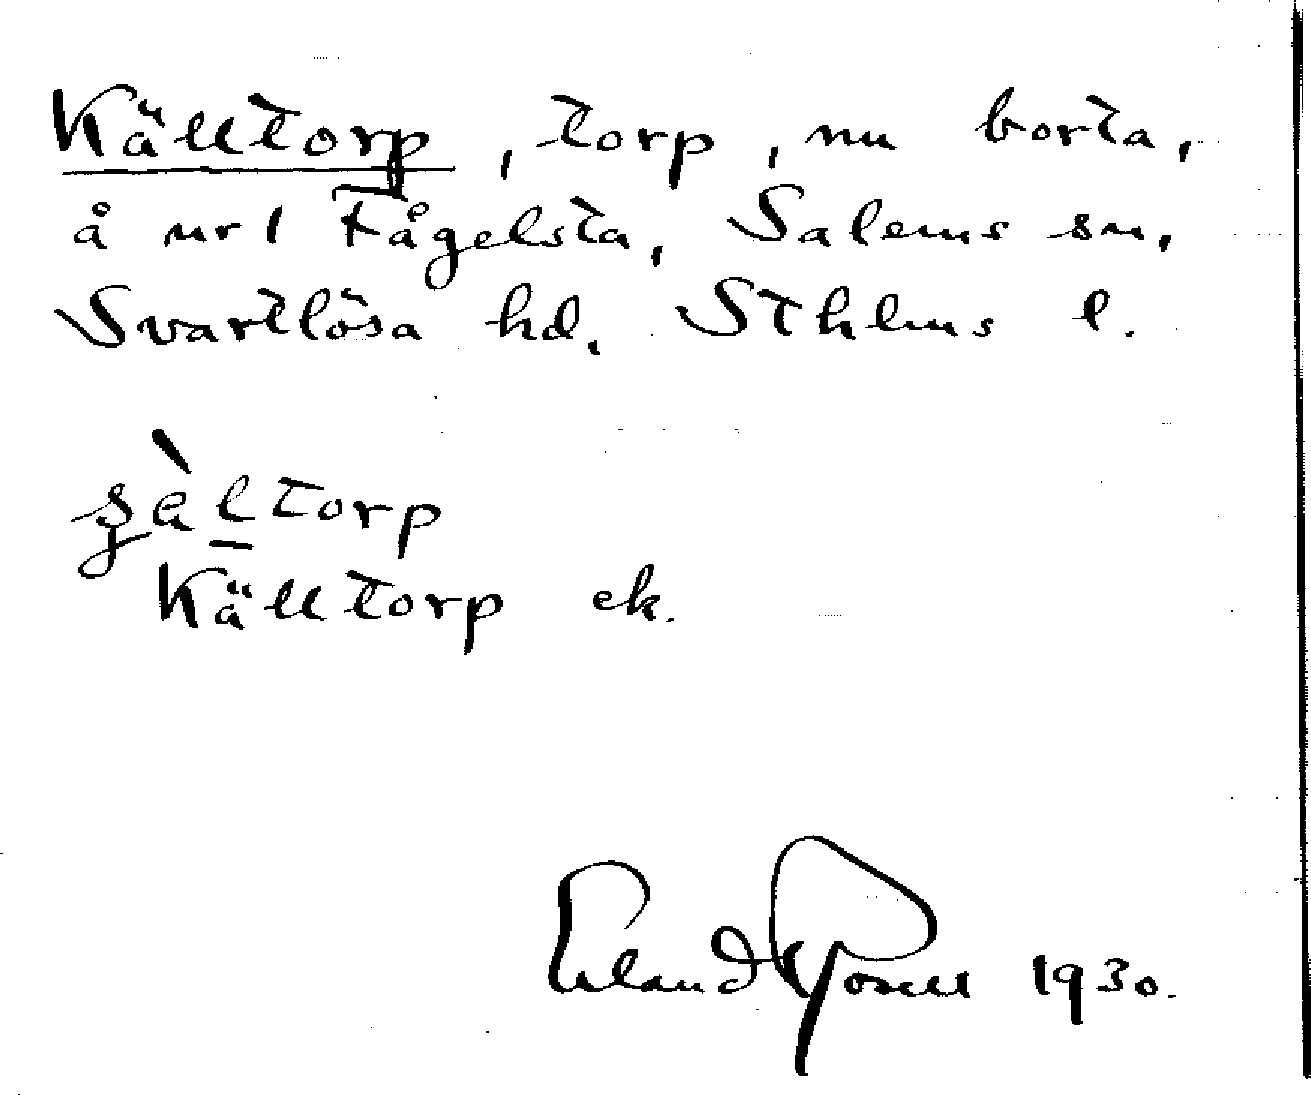 Källtorp, torp, nu borta,
å nr 1 Fågelsta, Salems sn,
Svartlösa hd, Sthlms l.
ʂὰltorp
Källtorp ek.
Erland Rosell 1930.